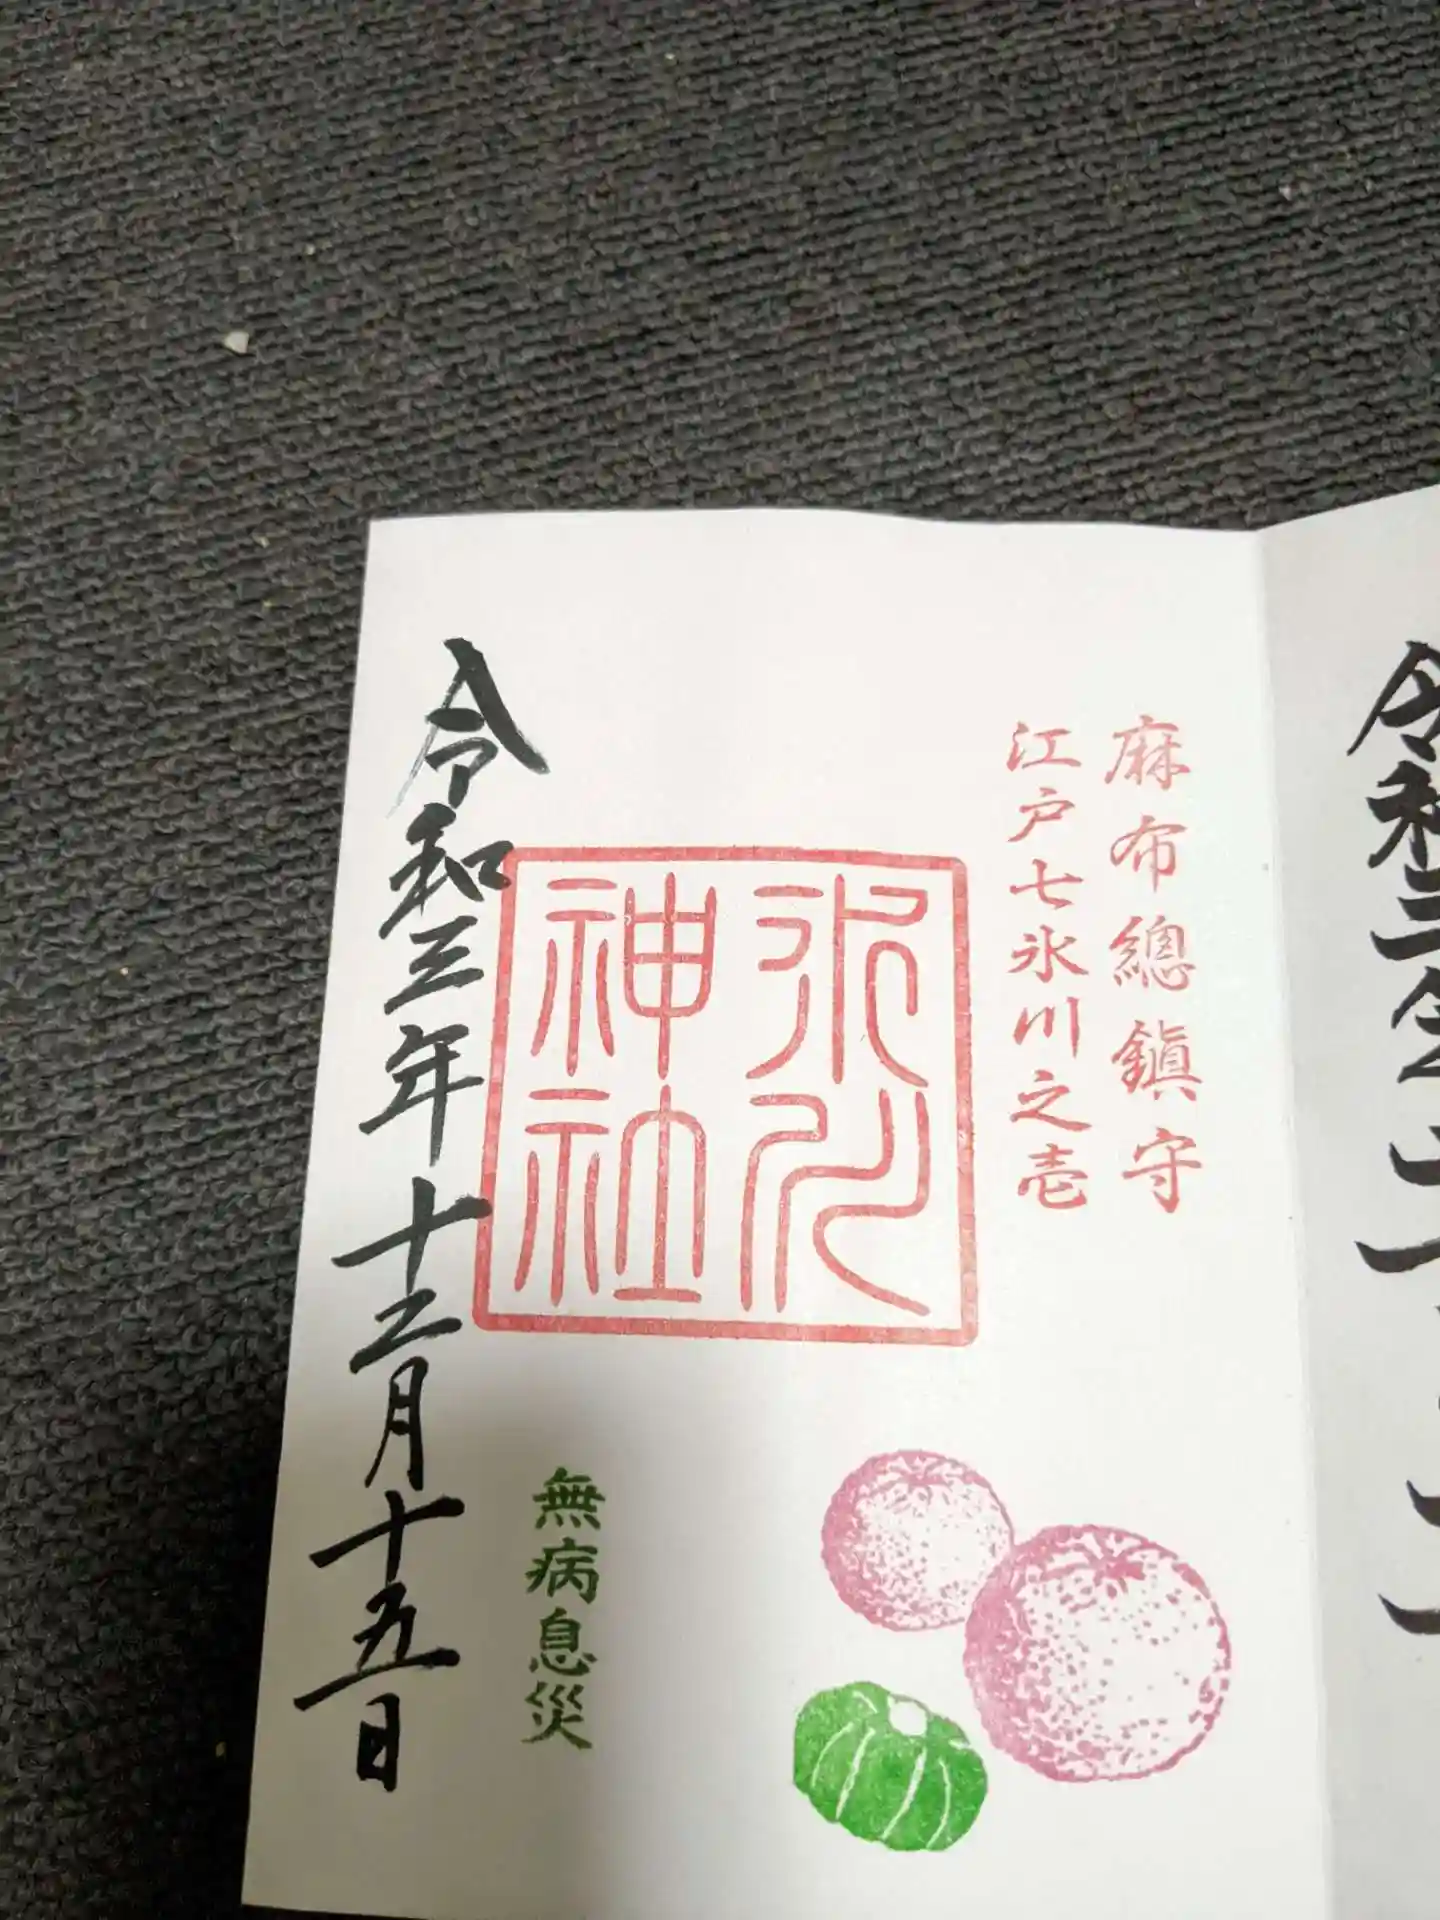 麻布總鎮守
江戸七氷川之壱
氷川
神社
無病息災
令和三年十二月十五日
令和三年